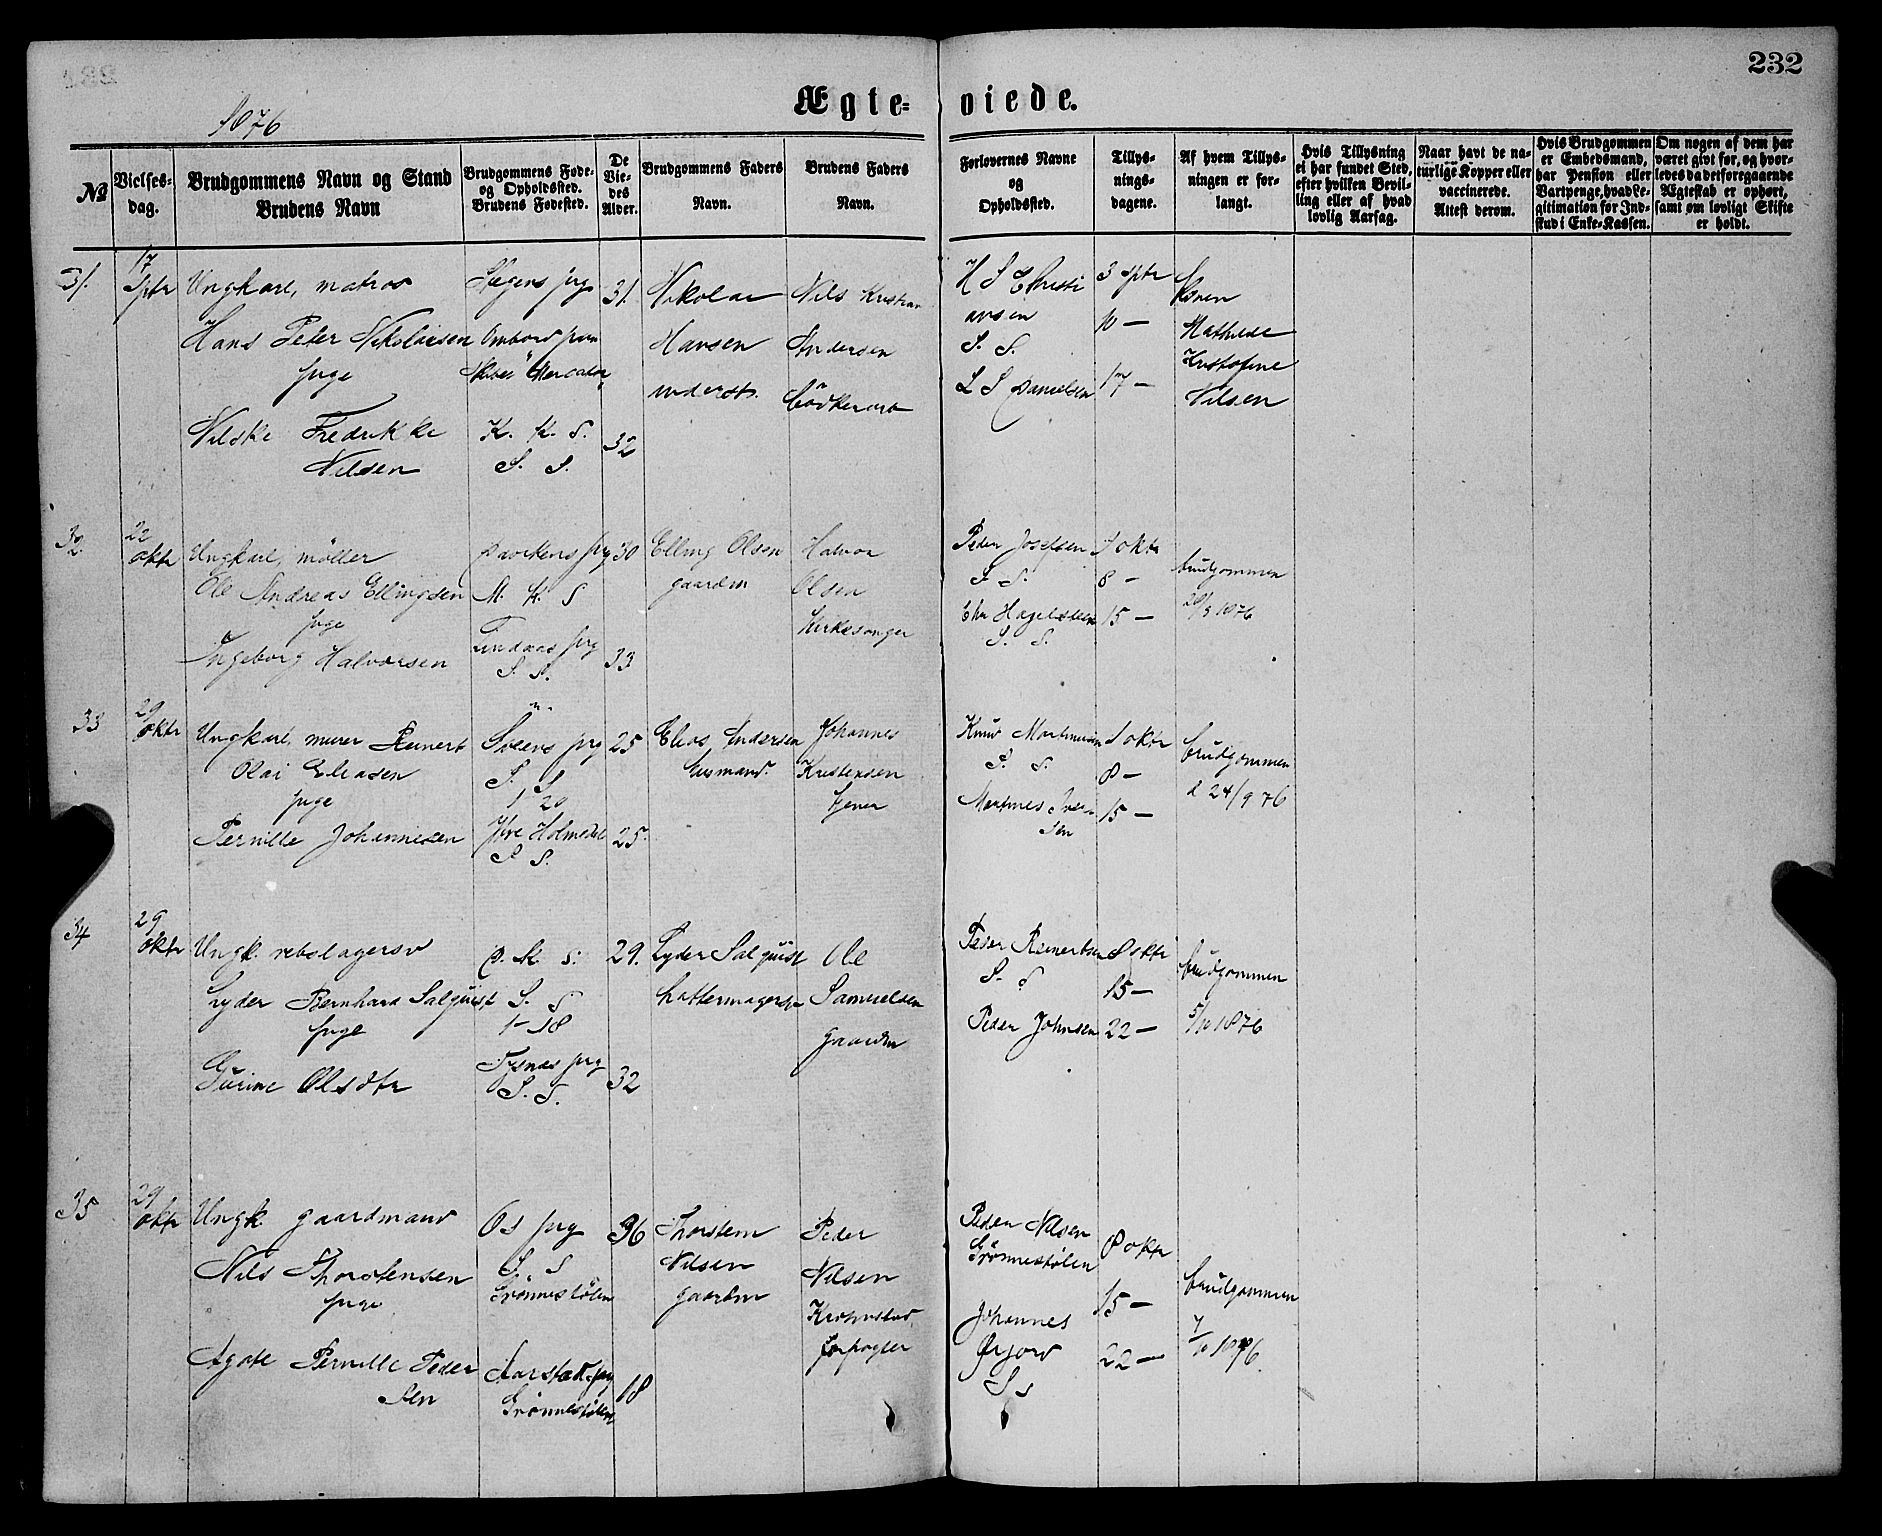 232
Ægte- viede.
1876
№
Vielses-
dag.
Brudgommens Navn og Stand
Brudens Navn
Brudgommens Føde-
og Opholdssted.
Brudens Fødested.
De
Vie-
des
Alder.
Brudgommens Faders
Navn.
Brudens Faders
Navn.
Forlovernes Navne
og
Opholdssted.
Tillys-
nings-
dagene.
Af hvem Tillys-
ningen er for-
langt.
Hvis Tillysning
ei har fundet Sted,
efter hvilken Bevil-
ling eller af hvad
lovlig Aarsag.
Naar havt de na-
turlige Kopper eller
vaccinerede.
Attest derom.
Hvis Brudgommen
er Embedsmand,
har Pension eller
Vartpenge, hvad Le-
gitimation for Ind-
skud i Enke-Kassen.
Om nogen af dem har
været gift før, og hvor-
ledes da det foregaaende
Ægteskab er ophørt,
samt om lovligt Skifte
er holdt.
31.
17
Sptr
Ungkarl, matros
Hans Peter Nikolaisen
pige
Nilske Fredrikke
Nilsen
prg
Ombord paa
Skibet Mercator
K. K. S.
S. S.
31
32
Nikolai
Hansen
Nils Kristian
Andersen
bödkerarb
H S Christi
ansen
S. S.
L S Danielsen
3 sptr
10 —
17 —
Mathilde
Kristofine
Nilsen
32.
22
oktr
Ungkarl, möller
Ole Andreas Ellingsen
pige
Ingeborg Halvorsen
prg
M. K. S
Lindaas prg
S. S.
30
33
Elling Olsen
gaardm
Halvor
Olsen
Kirkesanger
Peder Josefsen
S. S.
Chr Hagelsteen
S. S.
1 oktr
8 —
15 —
brudgommen
28/9 1876
33
29
oktr
Ungkarl, murer Reinert
Olai Eliasen
pige
Pernille Johannesen
prg
S. S
1-20
Ytre Holmedal
S S.
25
25.
Elias Andersen
husmand.
Johannes
Kristensen
Knud Martinusen
S. S.
Martines Iver-
sen
1 oktr
8 —
15 —
brudgommen
d 24/9 76
34
29
oktr
Ungk. rebslagersv
Lyder Bernhard Salquist
pige
Gurine Olsdtr
D. K. S.
S. S
1-18
Tysnes prg
S. S.
29.
32
Lyder Salquist
hattemagersv
Ole
Samuelsen
gaardm
Peder Reinertsen
S. S
Peder Johnsen
8 oktr
15 —
22 —
brudgommen
5/10 1876
35
29
oktr
Ungk. gaardmand
Nils Thorstensen
pige
Agate Pernille Peder
sen
Os prg
S. S
Grönnestölen
Aarstad prg
Grönnestölen
36
18
Thorstein
Nilsen
gaardm
Peder
Nilsen
Kronstad,
forpagter
Peder Nilsen
Grönnestölen
Johannes
S S
8 oktr
15 —
22 —
brudgommen
7/10 1876.